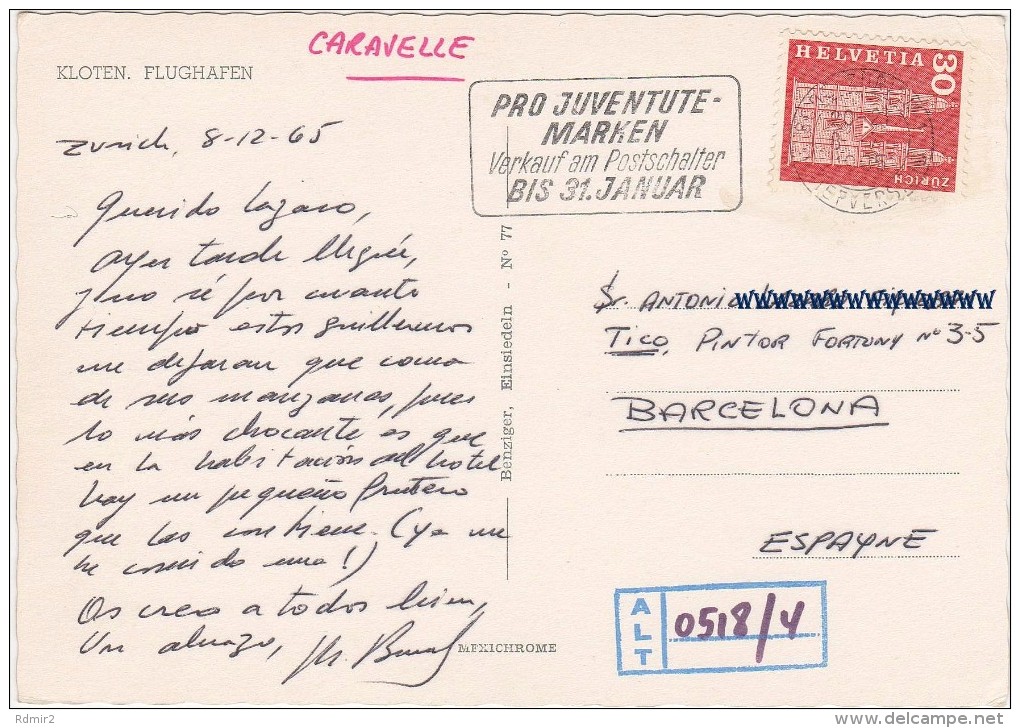 CARAVELLE
KLOTEN. FLUGHAFEN
Zurich, 8-12-65
Querido Lazaro,
ayer tarde llegué,
y no sé por cuanto
tiempo estos guillermos
me dejaran que coma
de sus manzanas, pues
lo más chocante es que
en la habitación del hotel
hay un pequeño frutero
que las contiene. (Ya me
he comido una!)
Os creo a todos bien,
Un abrazo,
MEXICHROME
Benziger, Einsiedeln - Nº 77
PRO JUVENTUTE-
MARKEN
Verkauf am Postschalter
BIS 31. JANUAR
HELVETIA
30
ZÜRICH
Sr. ANTONIO
TICO, PINTOR FORTUNY Nº 3-5
BARCELONA
ESPAYNE
ALT
0518/4
Rdmir2
www.delcampe.net